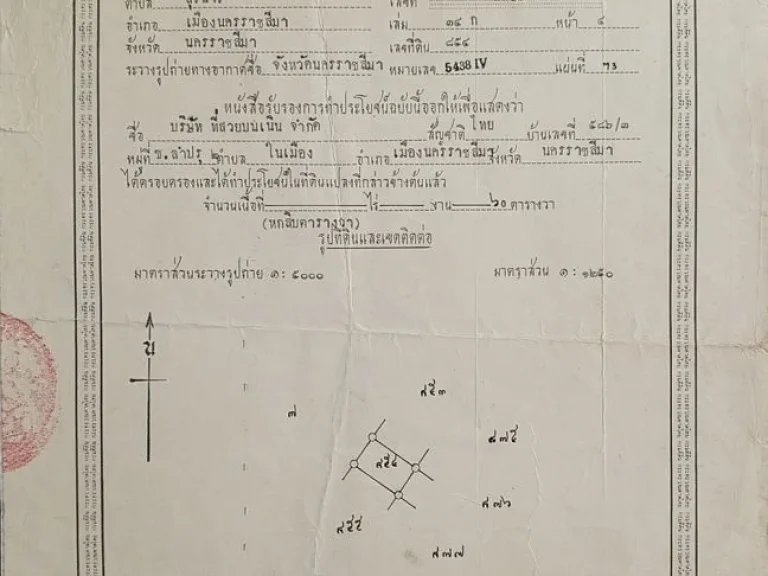 อำเภอ เมืองนครราชสีมา เล่ม ๑๔ ก หน้า ๔
จังหวัด นครราชสีมา เลขที่ดิน ๘๕๔
ระวางรูปถ่ายทางอากาศชื่อ จังหวัดนครราชสีมา หมายเลข 5438 IV แผ่นที่ ๗๖
หนังสือรับรองการทำประโยชน์ฉบับนี้ออกให้เพื่อแสดงว่า
ชื่อ บริษัท ที่สวยบนเนิน จำกัด สัญชาติ ไทย บ้านเลขที่ ๕๘๖/๓
หมู่ที่ ซ.ลำปรุ ๒ ตำบล ในเมือง อำเภอ เมืองนครราชสีมา จังหวัด นครราชสีมา
ได้ครอบครองและได้ทำประโยชน์ในที่ดินแปลงที่กล่าวข้างต้นแล้ว
จำนวนเนื้อที่ ไร่ งาน ๖๐ ตารางวา
(หกสิบตารางวา)
รูปที่ดินและเขตติดต่อ
มาตราส่วนระวางรูปถ่าย ๑ : ๕๐๐๐ มาตราส่วน ๑ : ๑๒๕๐
น
๘๕๓
๗
๘๗๕
๘๕๔
๘๗๖
๘๕๕
๘๗๗